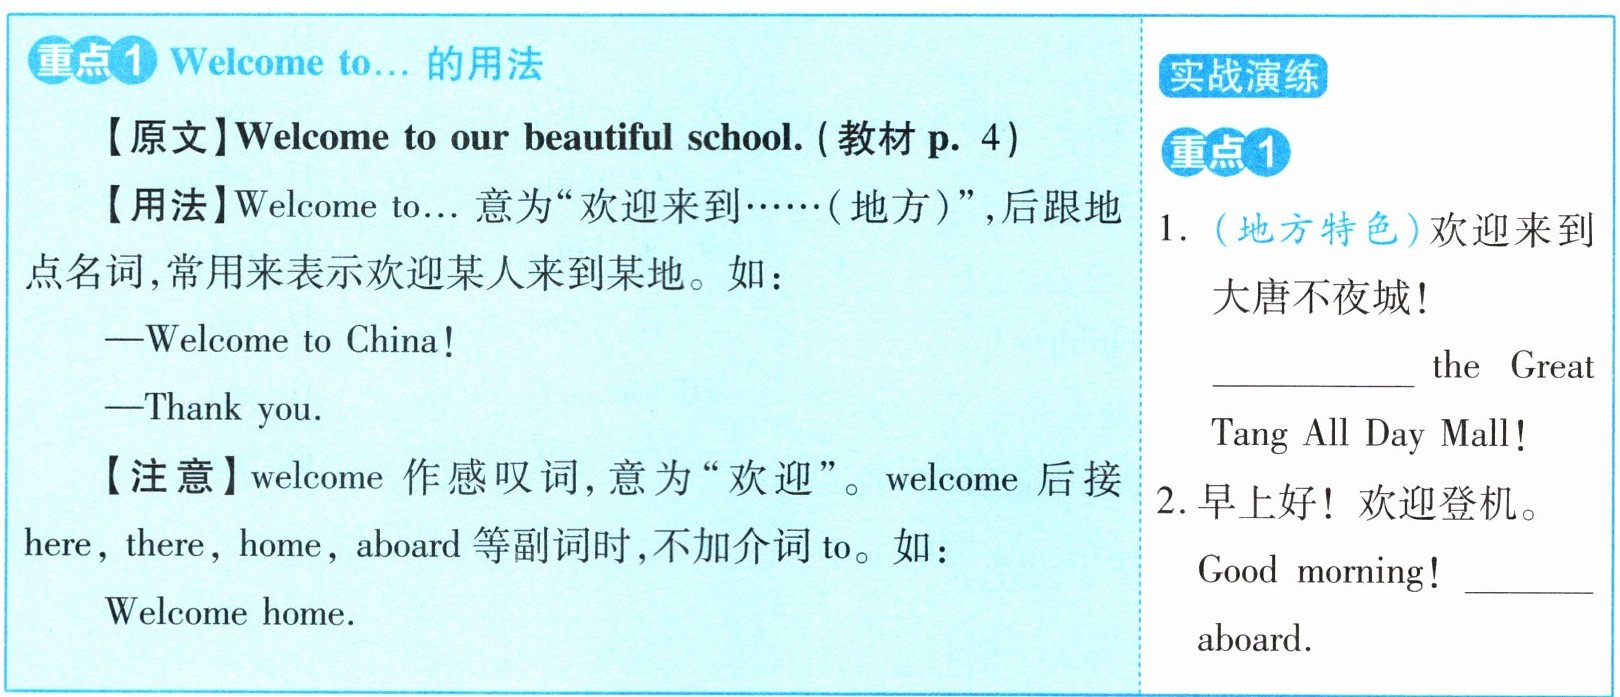 重点1 Welcome to... 的用法
【原文】Welcome to our beautiful school. (教材 p. 4)
【用法】Welcome to... 意为“欢迎来到……(地方)”,后跟地
点名词,常用来表示欢迎某人来到某地。如:
—Welcome to China!
—Thank you.
【注意】welcome 作感叹词,意为“欢迎”。welcome 后接
here, there, home, aboard 等副词时,不加介词 to。如:
Welcome home.
实战演练
重点1
1. (地方特色)欢迎来到
大唐不夜城!
__________ the Great
Tang All Day Mall!
2. 早上好! 欢迎登机。
Good morning! ______
aboard.